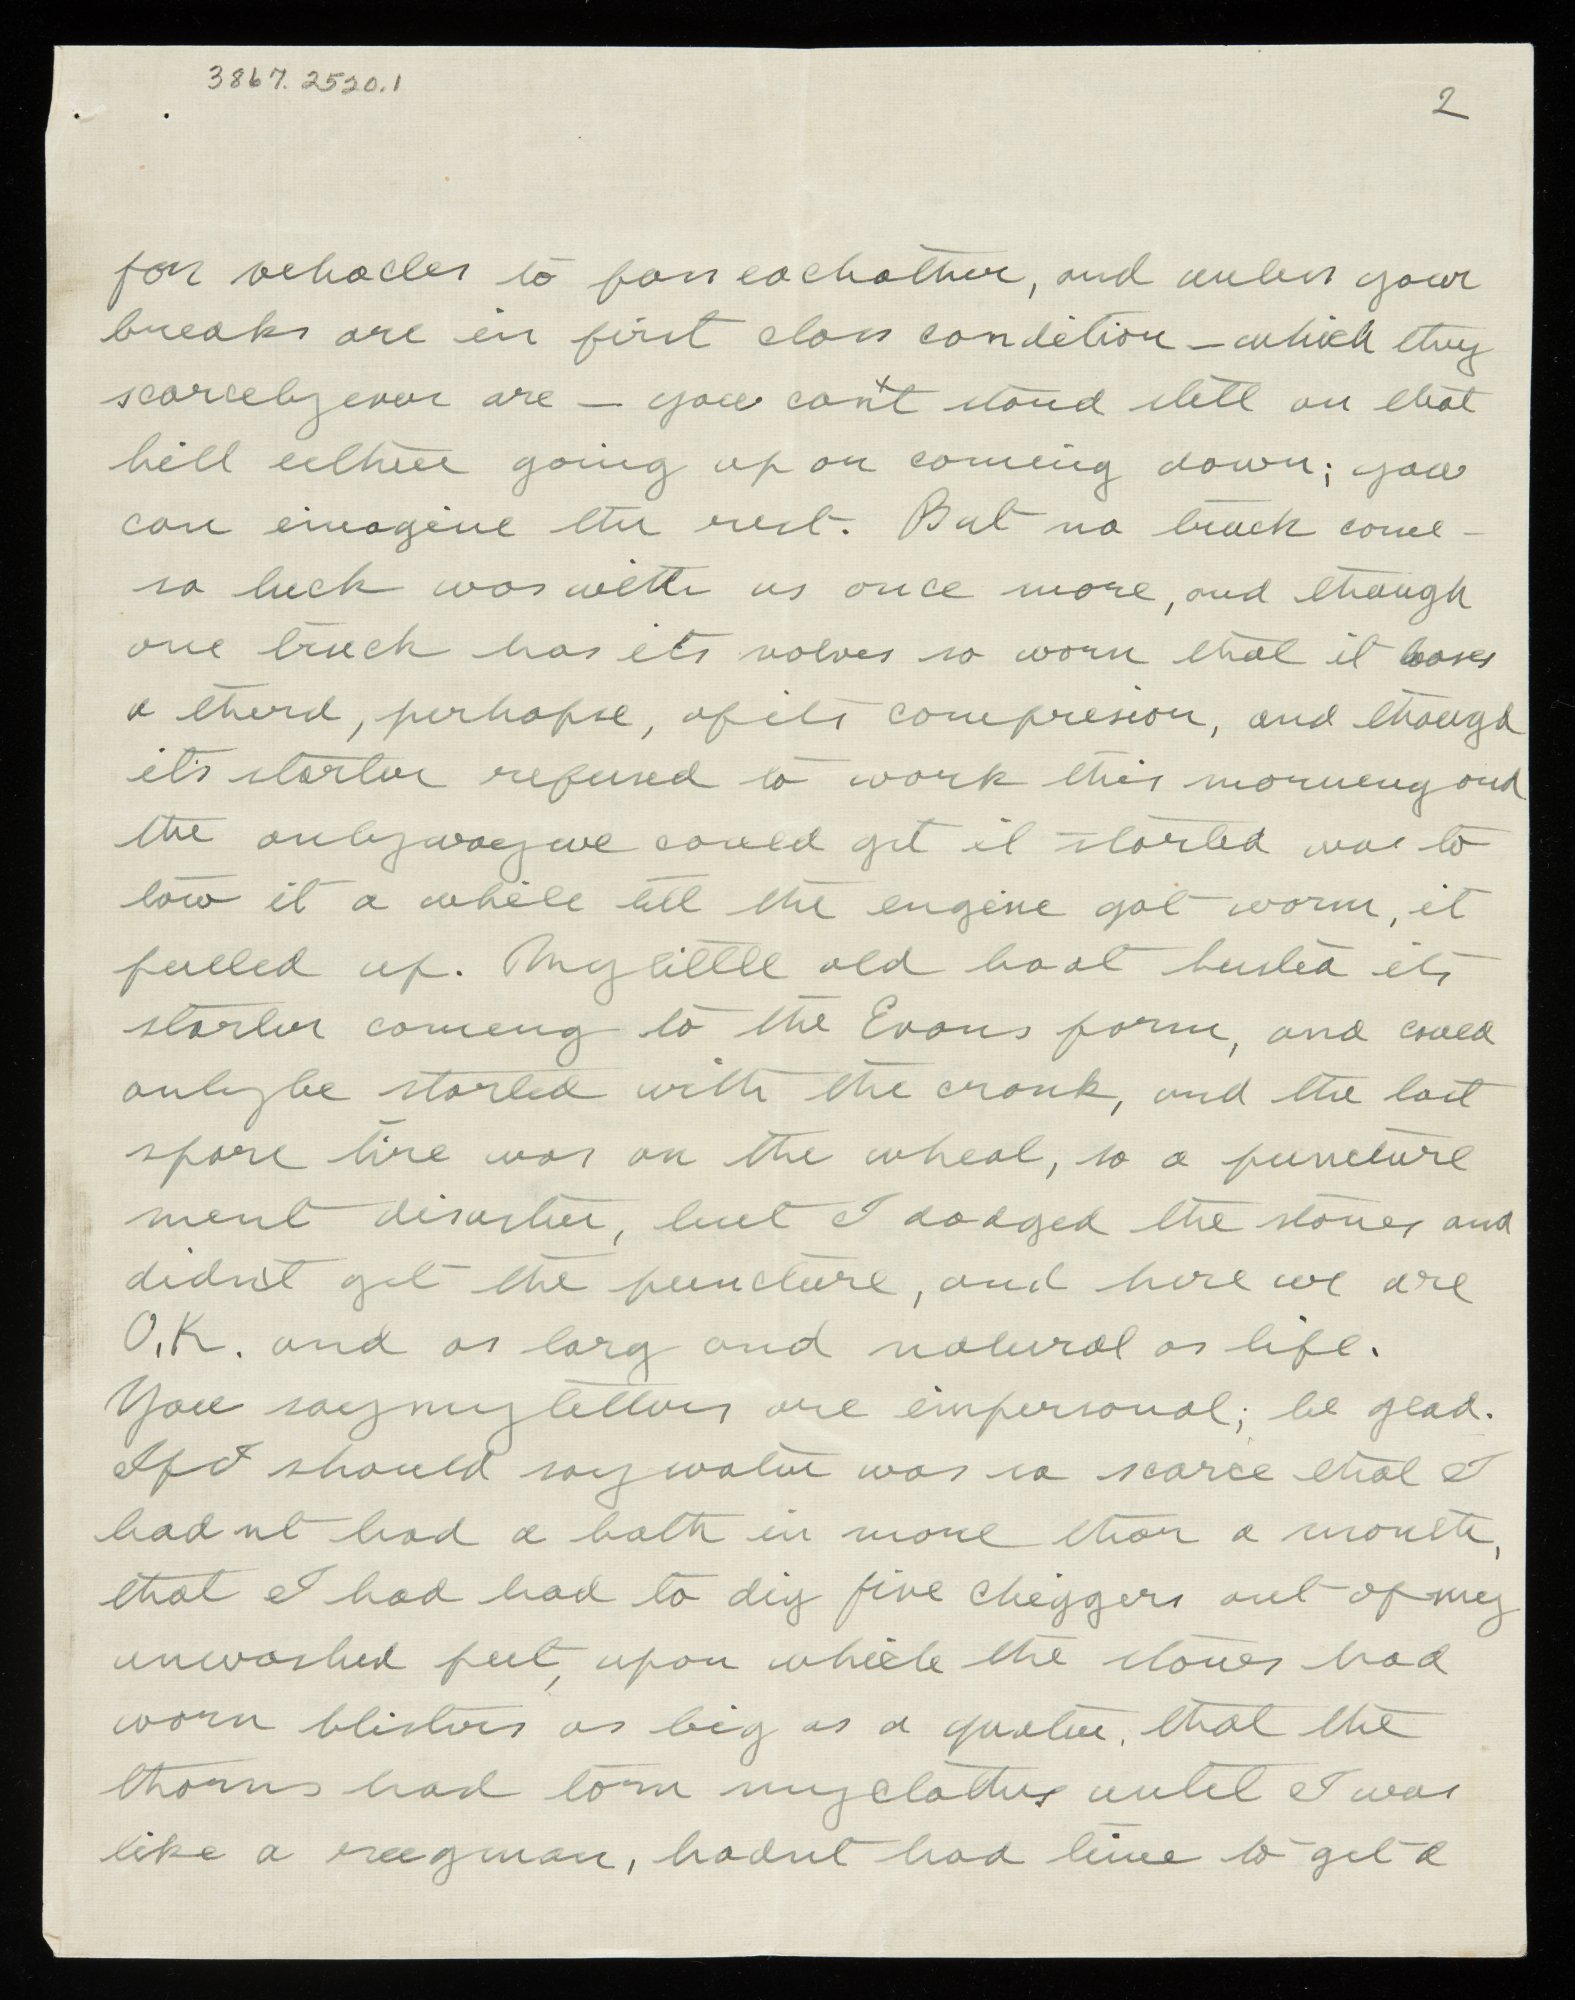 3867.2520.1
2
for vehacles to pass eachother, and unless your
breaks are in first class condition – which they
scarcely ever are – you can't stand still on that
hill either going up or coming down; you
can imagine the rest. But no truck come –
so luck was with us once more, and though
one truck has its valves so worn that it looses
a therd, perhapse, of its compresion, and though
it's starter refused to work this morneng and
the only way we could get it started was to
tow it a while till the engine got worm, it
pulled up. My little old boat busted its
starter comeng to the Evans farm, and could
only be started with the crank, and the last
spare tire was on the wheal, so a puncture
ment disaster, but I dodged the stones and
didn't get the puncture, and here we are
O.K. and as larg and natural as life.
You say my letters are impersonal; be glad.
If I should say water was so scarce that I
hadnt had a bath in more than a month,
that I had had to dig five chiggers out of my
unwashed feet, upon which the stones had
worn blisters as big as a quater, that the
thorns had torn my clothes until I was
like a ragman, hadnt had time to get a